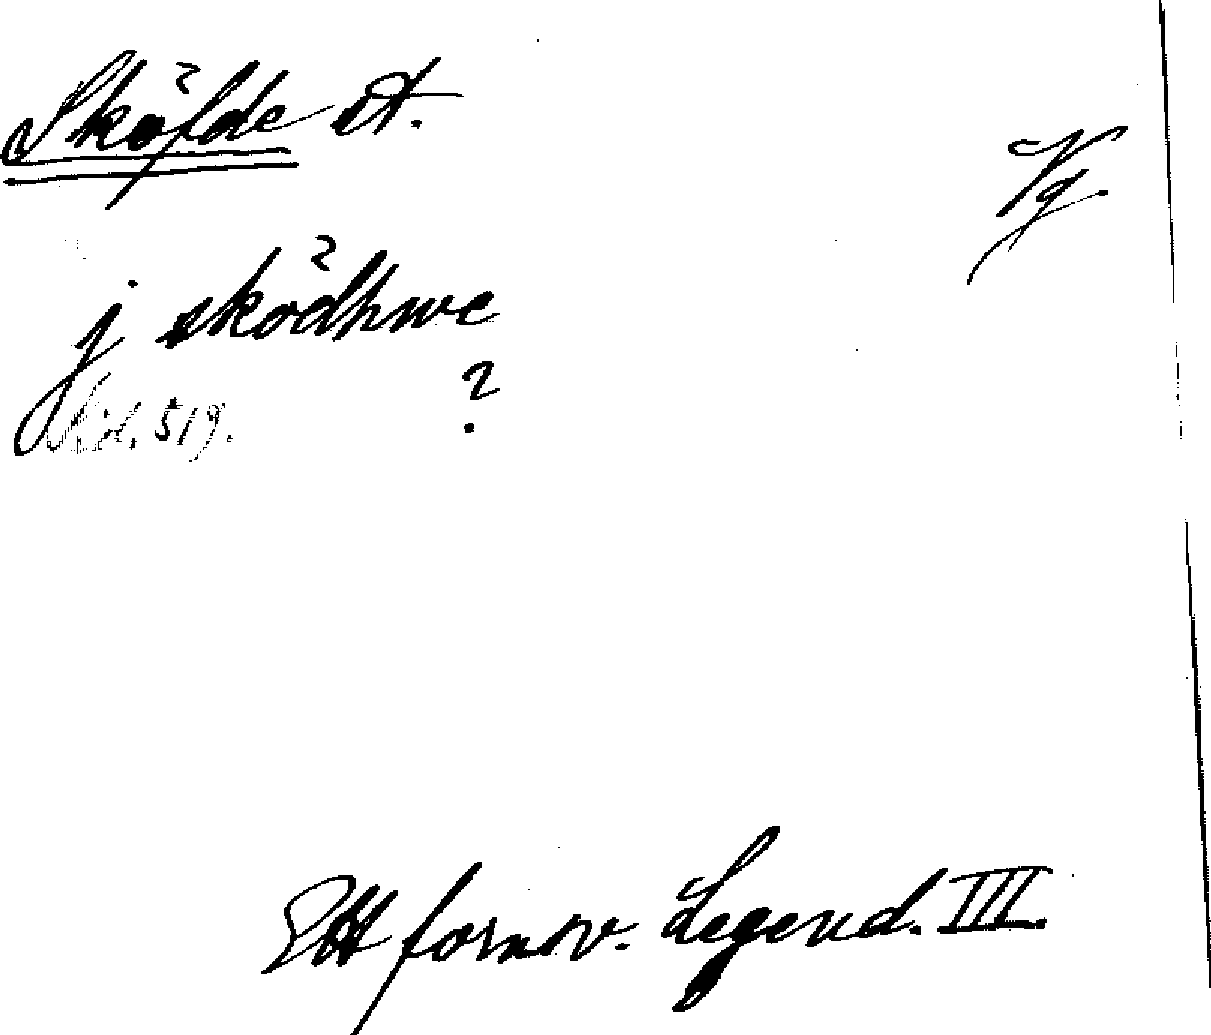 Sköfde st.
Vg.
j sködhwe
?
Sid. 519.
Ett fornsv. Legend. III.